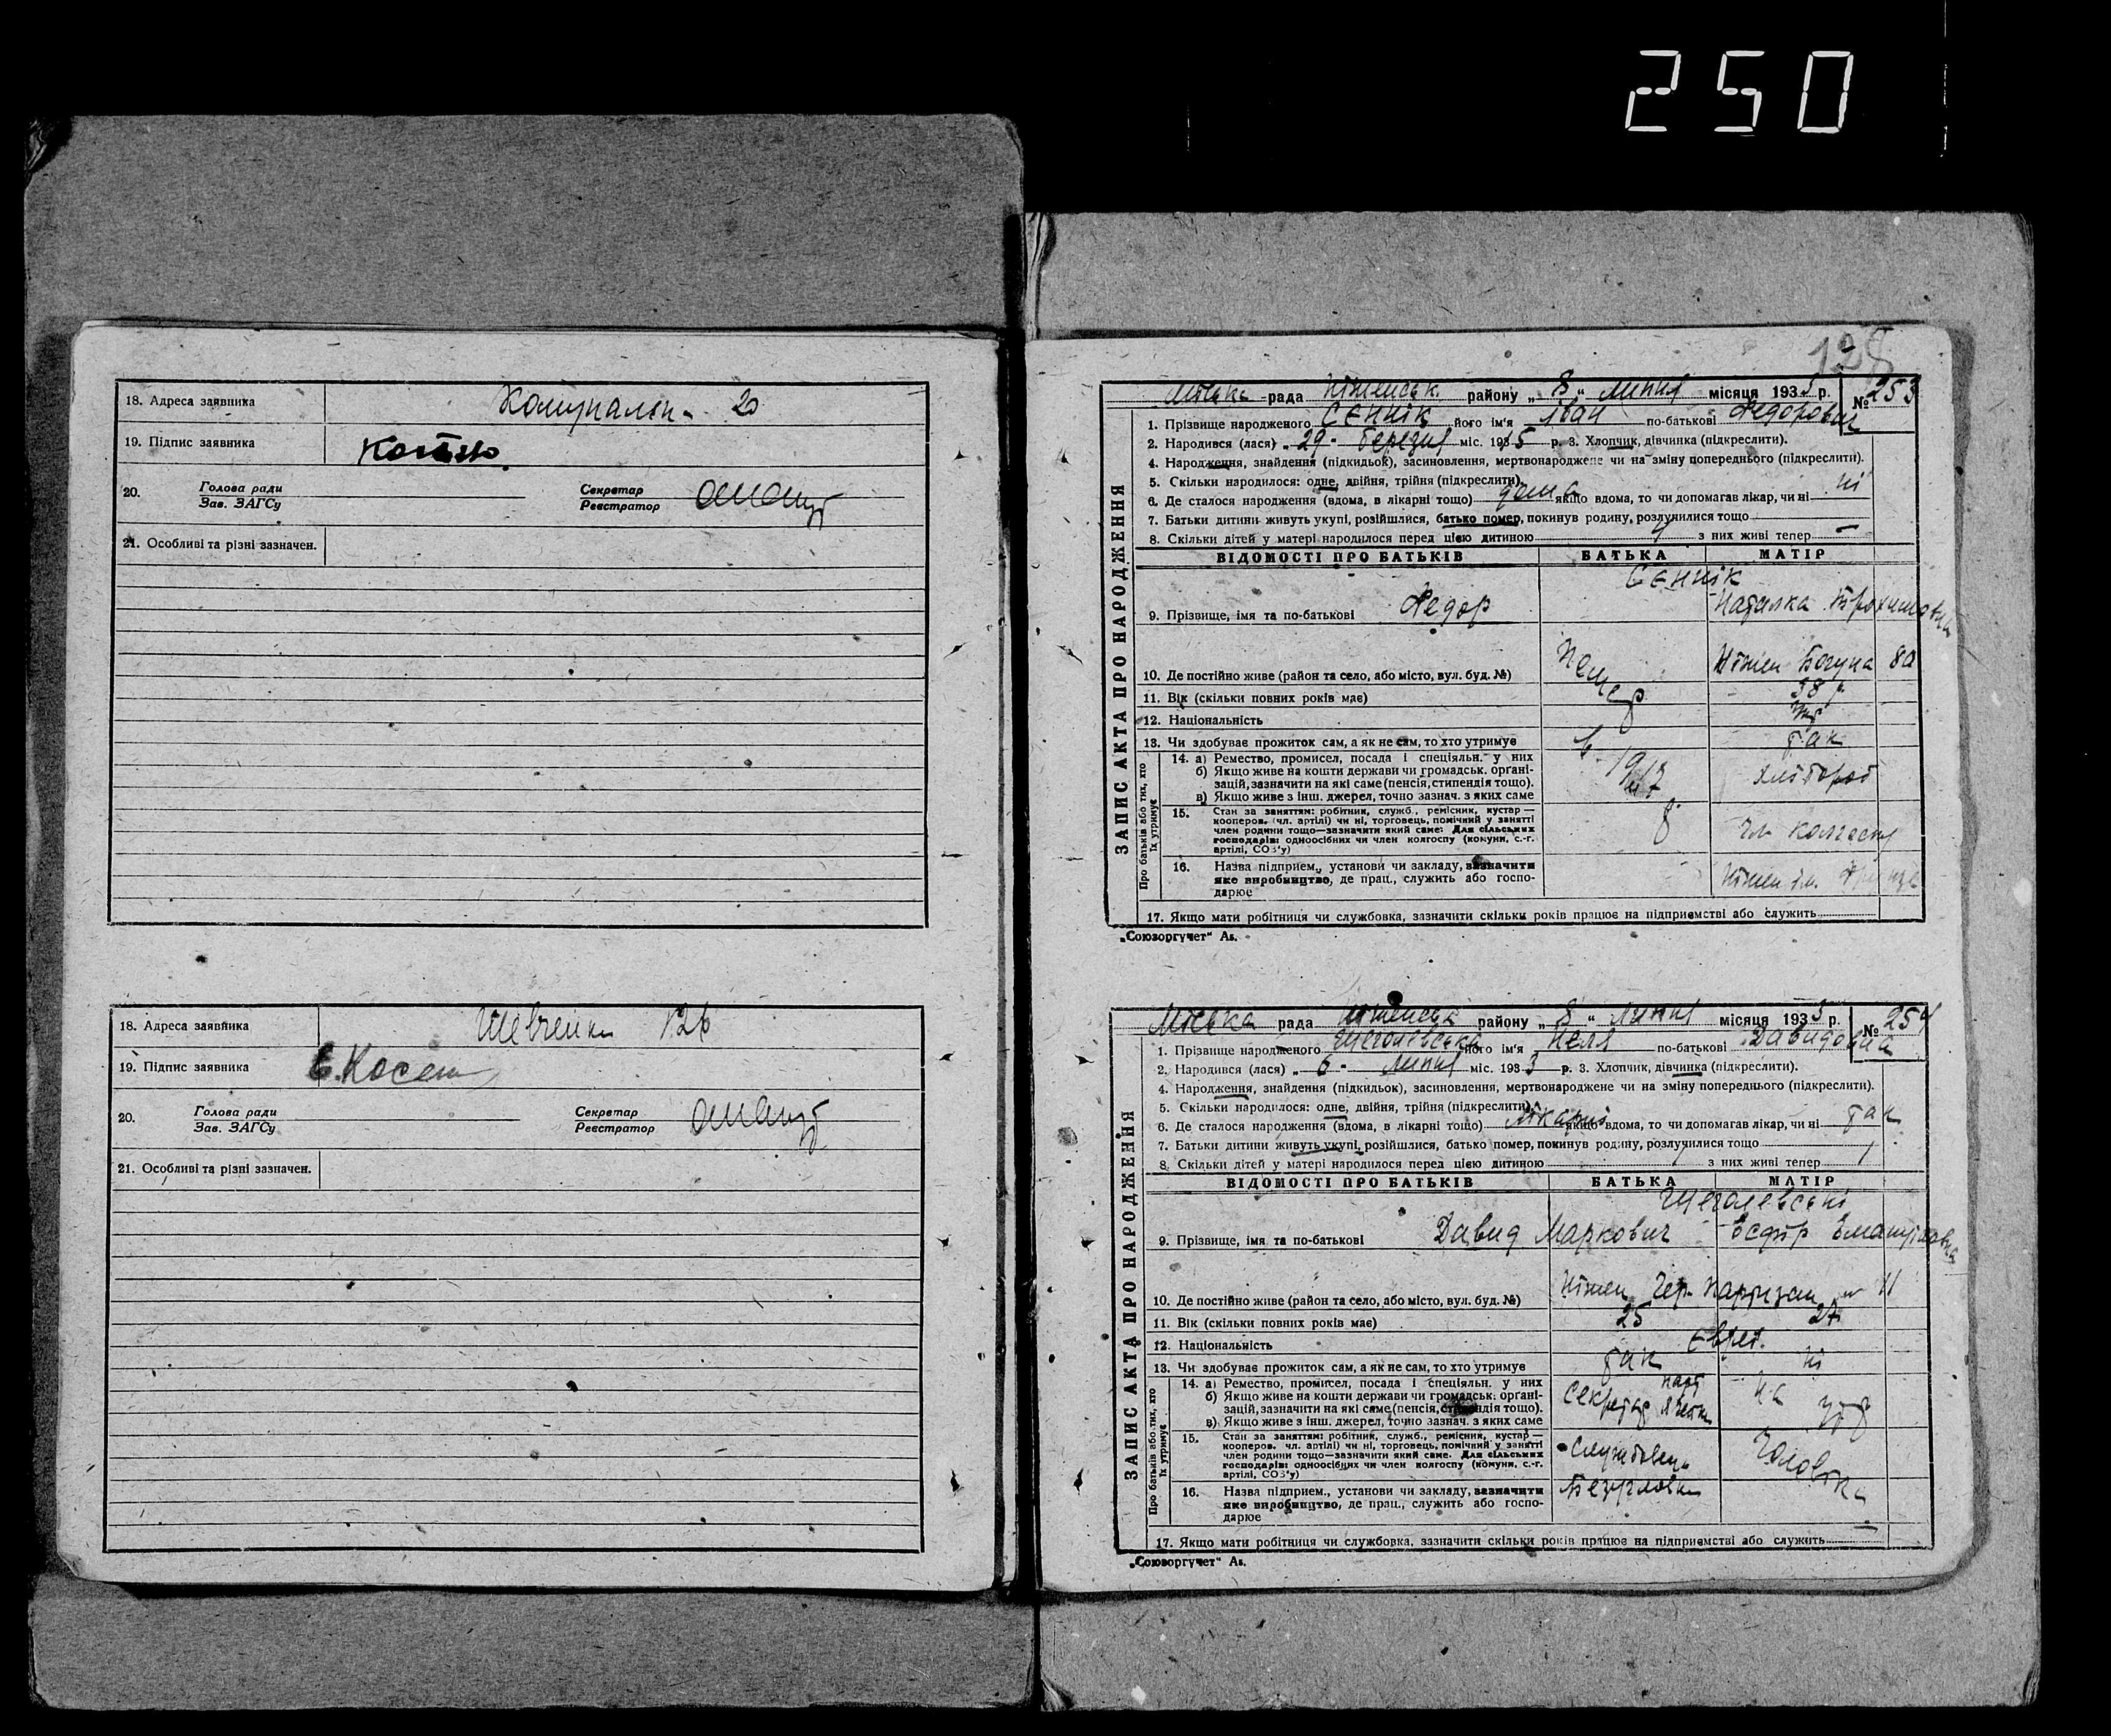 250
18. Адреса заявника Комунальн. 20
19. Підпис заявника
20. Голова ради Секретар
Зав. ЗАГСу Реєстратор
21. Особливі та різні зазначен.
18. Адреса заявника Шевченка 126
19. Підпис заявника Є. Косен
20. Голова ради Секретар
Зав. ЗАГСу Реєстратор
21. Особливі та різні зазначен.
128
Міська рада Ніженськ. району „8“ липня місяця 1933 р. № 253
ЗАПИС АКТА ПРО НАРОДЖЕННЯ
1. Прізвище народженого Сєннік його ім'я Іван по-батькові Федорович
2. Народився (лася) „29- березня міс. 1935 р. 3. Хлопчик, дівчинка (підкреслити).
4. Народження, знайдення (підкидьок), засиновлення, мертвонароджене чи на зміну попереднього (підкреслити).
5. Скільки народилося: одне, двійня, трійня (підкреслити).
6. Де сталося народження (вдома, в лікарні тощо) дома якщо вдома, то чи допомагав лікар, чи ні ні
7. Батьки дитини живуть укупі, розійшлися, батько помер, покинув родину, розлучилися тощо
8. Скільки дітей у матері народилося перед цією дитиною з них живі тепер —
ВІДОМОСТІ ПРО БАТЬКІВ БАТЬКА МАТІР
Сєннік
9. Прізвище, імя та по-батькові Федор Наталка Трохимовна
10. Де постійно живе (район та село, або місто, вул. буд. №) Помер Ніжен Богуна 80
11. Вік (скільки повних років має) 38 р.
12. Національність укр
13. Чи здобуває прожиток сам, а як не сам, то хто утримує так
Про батьків або тих, хто їх утримує
14. а) Ремество, промисел, посада і спеціяльн. у них
б) Якщо живе на кошти держави чи громадськ. органі-
зацій, зазначити на які саме (пенсія, стипендія тощо). хлібороб
в) Якщо живе з інш. джерел, точно зазнач. з яких саме
15. Стан за заняттям: робітник, служб., ремісник, кустар —
кооперов. (чл. артілі) чи ні, торговець, помічний у занятті
член родини тощо—зазначити який саме: Для сільських
господарів: одноосібних чи член колгоспу (комуни, с.-г.
артілі, СОЗ'у) чл. колгоспу
16. Назва підприєм., установи чи закладу, зазначити
яке виробництво, де прац., служить або госпо-
дарює Ніжен ім. Фрунзе
17. Якщо мати робітниця чи службовка, зазначити скільки років працює на підприємстві або служить
„Союзоргучет“ Аs.
Міська рада Ніженськ району „8“ липня місяця 1933 р. № 254
ЗАПИС АКТА ПРО НАРОДЖЕННЯ
1. Прізвище народженого Щеголевська його ім'я Неля по-батькові Давидовна
2. Народився (лася) „6- липня міс. 1933 р. 3. Хлопчик, дівчинка (підкреслити).
4. Народження, знайдення (підкидьок), засиновлення, мертвонароджене чи на зміну попереднього (підкреслити).
5. Скільки народилося: одне, двійня, трійня (підкреслити).
6. Де сталося народження (вдома, в лікарні тощо) лікарні якщо вдома, то чи допомагав лікар, чи ні так
7. Батьки дитини живуть укупі, розійшлися, батько помер, покинув родину, розлучилися тощо
8. Скільки дітей у матері народилося перед цією дитиною 1 з них живі тепер 1
ВІДОМОСТІ ПРО БАТЬКІВ БАТЬКА МАТІР
Щеголевські
9. Прізвище, імя та по-батькові Давид Маркович Есфір Емануіловна
10. Де постійно живе (район та село, або місто, вул. буд. №) Ніжен Чер. Партизан 11
11. Вік (скільки повних років має) 25 27
12. Національність Євреї.
13. Чи здобуває прожиток сам, а як не сам, то хто утримує так ні
Про батьків або тих, хто їх утримує
14. а) Ремество, промисел, посада і спеціяльн. у них
б) Якщо живе на кошти держави чи громадськ. органі-
зацій, зазначити на які саме (пенсія, стипендія тощо). Секретар парт
в) Якщо живе з інш. джерел, точно зазнач. з яких саме
15. Стан за заняттям: робітник, служб., ремісник, кустар —
кооперов. чл. артілі) чи ні, торговець, помічний у занятті
член родини тощо—зазначити який саме. Для сільських
господарів: одноосібних чи член колгоспу (комуни, с.-г.
артілі, СОЗ'у) Службовець Чоловіка
16. Назва підприєм., установи чи закладу, зазначити
яке виробництво, де прац., служить або госпо-
дарює
17. Якщо мати робітниця чи службовка, зазначити скільки років працює на підприємстві або служить —
„Союзоргучет“ Аs.